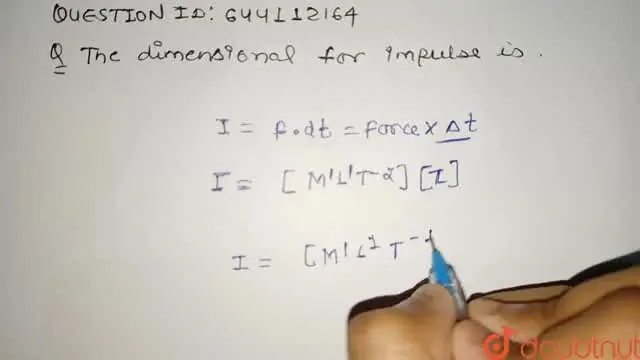 QUESTION ID: 644112164
Q The dimensional for impulse is.
I = f.dt = force × Δt
I = [M¹L¹T-2] [I]
I = [M¹L¹T⁻
doubtnut